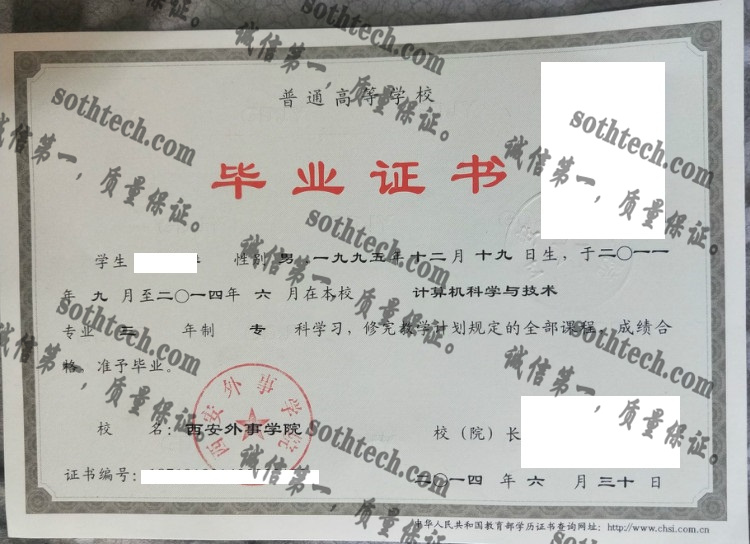 普通高等学校
毕业证书
学生 性别 男，一九九五年十二月十九日生，于二〇一一
年 九 月至二〇一四年 六 月在本校 计算机科学与技术
专业 三 年制 专 科学习，修完教学计划规定的全部课程，成绩合
格，准予毕业。
校 名：西安外事学院
校（院）长
证书编号：
二〇一四 年 六 月 三十 日
中华人民共和国教育部学历证书查询网址：http://www.chsi.com.cn
西安外事学院
sothtech.com
诚信第一，质量保证。
sothtech.com
诚信第一，质量保证。
sothtech.com
诚信第一，质量保证。
sothtech.com
诚信第一，质量保证。
sothtech.com
诚信第一，质量保证。
sothtech.com
诚信第一，质量保证。
sothtech.com
诚信第一，质量保证。
sothtech.com
诚信第一，质量保证。